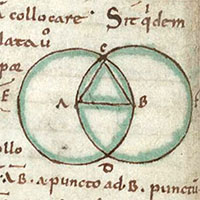 collocare. Sit q̇dem
lata ů
C
E
A B
llo
D
A B. a puncto ad. B. punctū